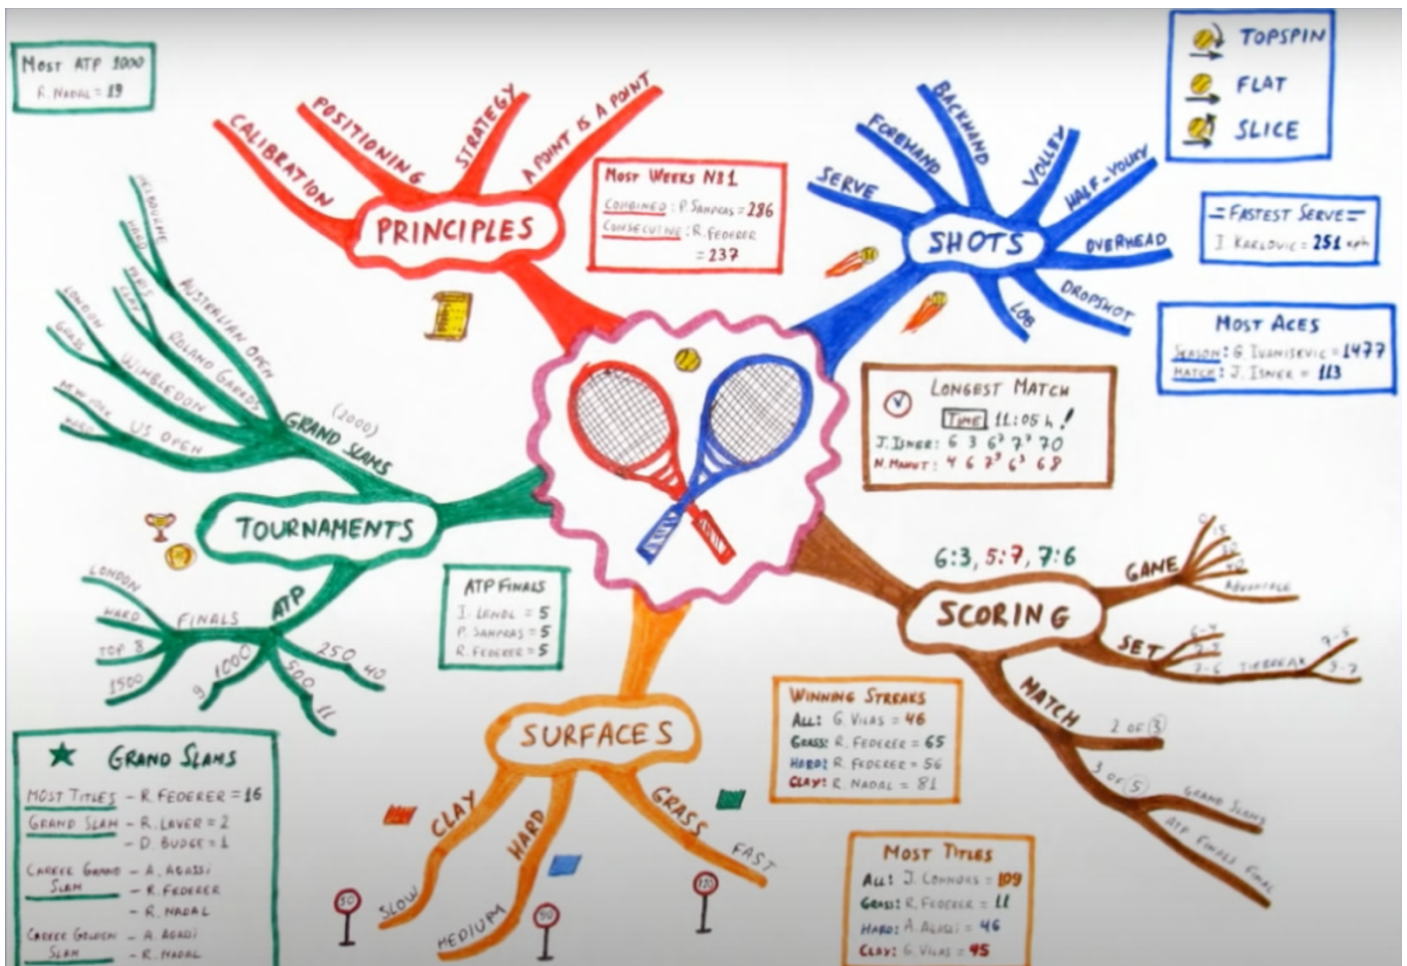 MOST ATP 1000
R. NADAL = 19
CALIBRATION
POSITIONING
STRATEGY
A POINT IS A POINT
PRINCIPLES
MOST WEEKS N81
COMBINED : P. SAMPRAS = 286
CONSECUTIVE : R. FEDERER
= 237
SERVE
FOREHAND
BACKHAND
VOLLEY
HALF-VOLLEY
OVERHEAD
DROPSHOT
LOB
SHOTS
TOPSPIN
FLAT
SLICE
=FASTEST SERVE=
I. KARLOVIC = 251 kph
MOST ACES
SEASON: G. IVANISEVIC = 1477
MATCH: J. ISNER = 113
LONGEST MATCH
TIME 11:05 h !
J. ISNER: 6 3 6⁷ 7⁷ 70
N. MAHUT: 4 6 7⁹ 6³ 68
MELBOURNE
HARD
AUSTRALIAN OPEN
PARIS
CLAY
ROLAND GARROS
LONDON
GRASS
WIMBLEDON
NEW YORK
HARD
US OPEN
(2000)
GRAND SLAMS
TOURNAMENTS
ATP
FINALS
LONDON
HARD
TOP 8
1500
1000
9
500
11
250
40
ATP FINALS
I. LENDL = 5
P. SAMPRAS = 5
R. FEDERER = 5
6:3, 5:7, 7:6
SCORING
GAME
0
15
30
40
ADVANTAGE
SET
6-4
7-5
7-6
TIEBREAK
7-5
9-7
MATCH
2 OF 3
3 OF 5
GRAND SLAMS
ATP FINALS FINAL
SURFACES
CLAY
SLOW
HARD
MEDIUM
GRASS
FAST
50
90
120
WINNING STREAKS
ALL: G. VILAS = 46
GRASS: R. FEDERER = 65
HARD: R. FEDERER = 56
CLAY: R. NADAL = 81
MOST TITLES
ALL: J. CONNORS = 109
GRASS: R. FEDERER = 11
HARD: A. AGASSI = 46
CLAY: G. VILAS = 45
GRAND SLAMS
MOST TITLES - R. FEDERER = 16
GRAND SLAM - R. LAVER = 2
- D. BUDGE = 1
CAREER GRAND - A. AGASSI
SLAM - R. FEDERER
- R. NADAL
CAREER GOLDEN - A. AGASSI
SLAM - R. NADAL